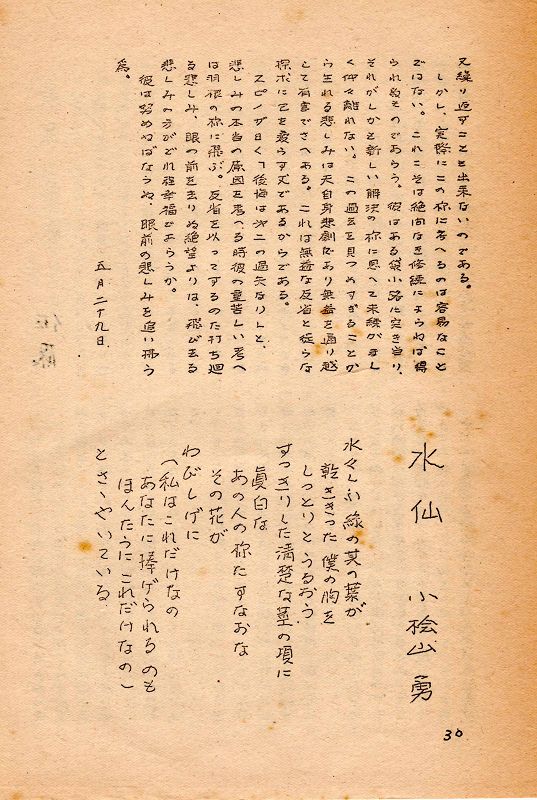 又繰り返すことも出来ないのである。
しかし、実際にこの様に考へるのは容易なこと
ではない。これこそは絶間なき修練によらねば得
られぬものであらう。彼はある袋小路に突き当り、
それがしかも新しい解決の様に思へて未練がまし
く仲々離れない。この過去を見つめすぎることか
ら生れる悲しみは夫自身悲劇であり無益を通り越
して有害でさへある。これは無益な反省と徒らな
探求に己を委らす丈であるからである。
スピノザ曰く「後悔は第二の過失なり」と、
悲しみの本当の原因を考へる時彼の重苦しい考へ
は羽根の様に飛ぶ。反省を以ってするのた打ち廻
る悲しみ、眼の前を去りぬ絶望よりは、飛び去る
悲しみの方がどれ程幸福であらうか。
彼は努めねばならぬ、眼前の悲しみを追い拂う
為。
五月二十九日、
水仙
小桧山勇
水々しい緑の其の葉が
乾ききった僕の胸を
しっとりとうるおう
すっきりした清楚な茎の頂に
眞白な
あの人の様なすなおな
その花が
わびしげに
(私はこれだけなの
あなたに捧げられるのも
ほんたうにこれだけなの)
とさゝやいている
30